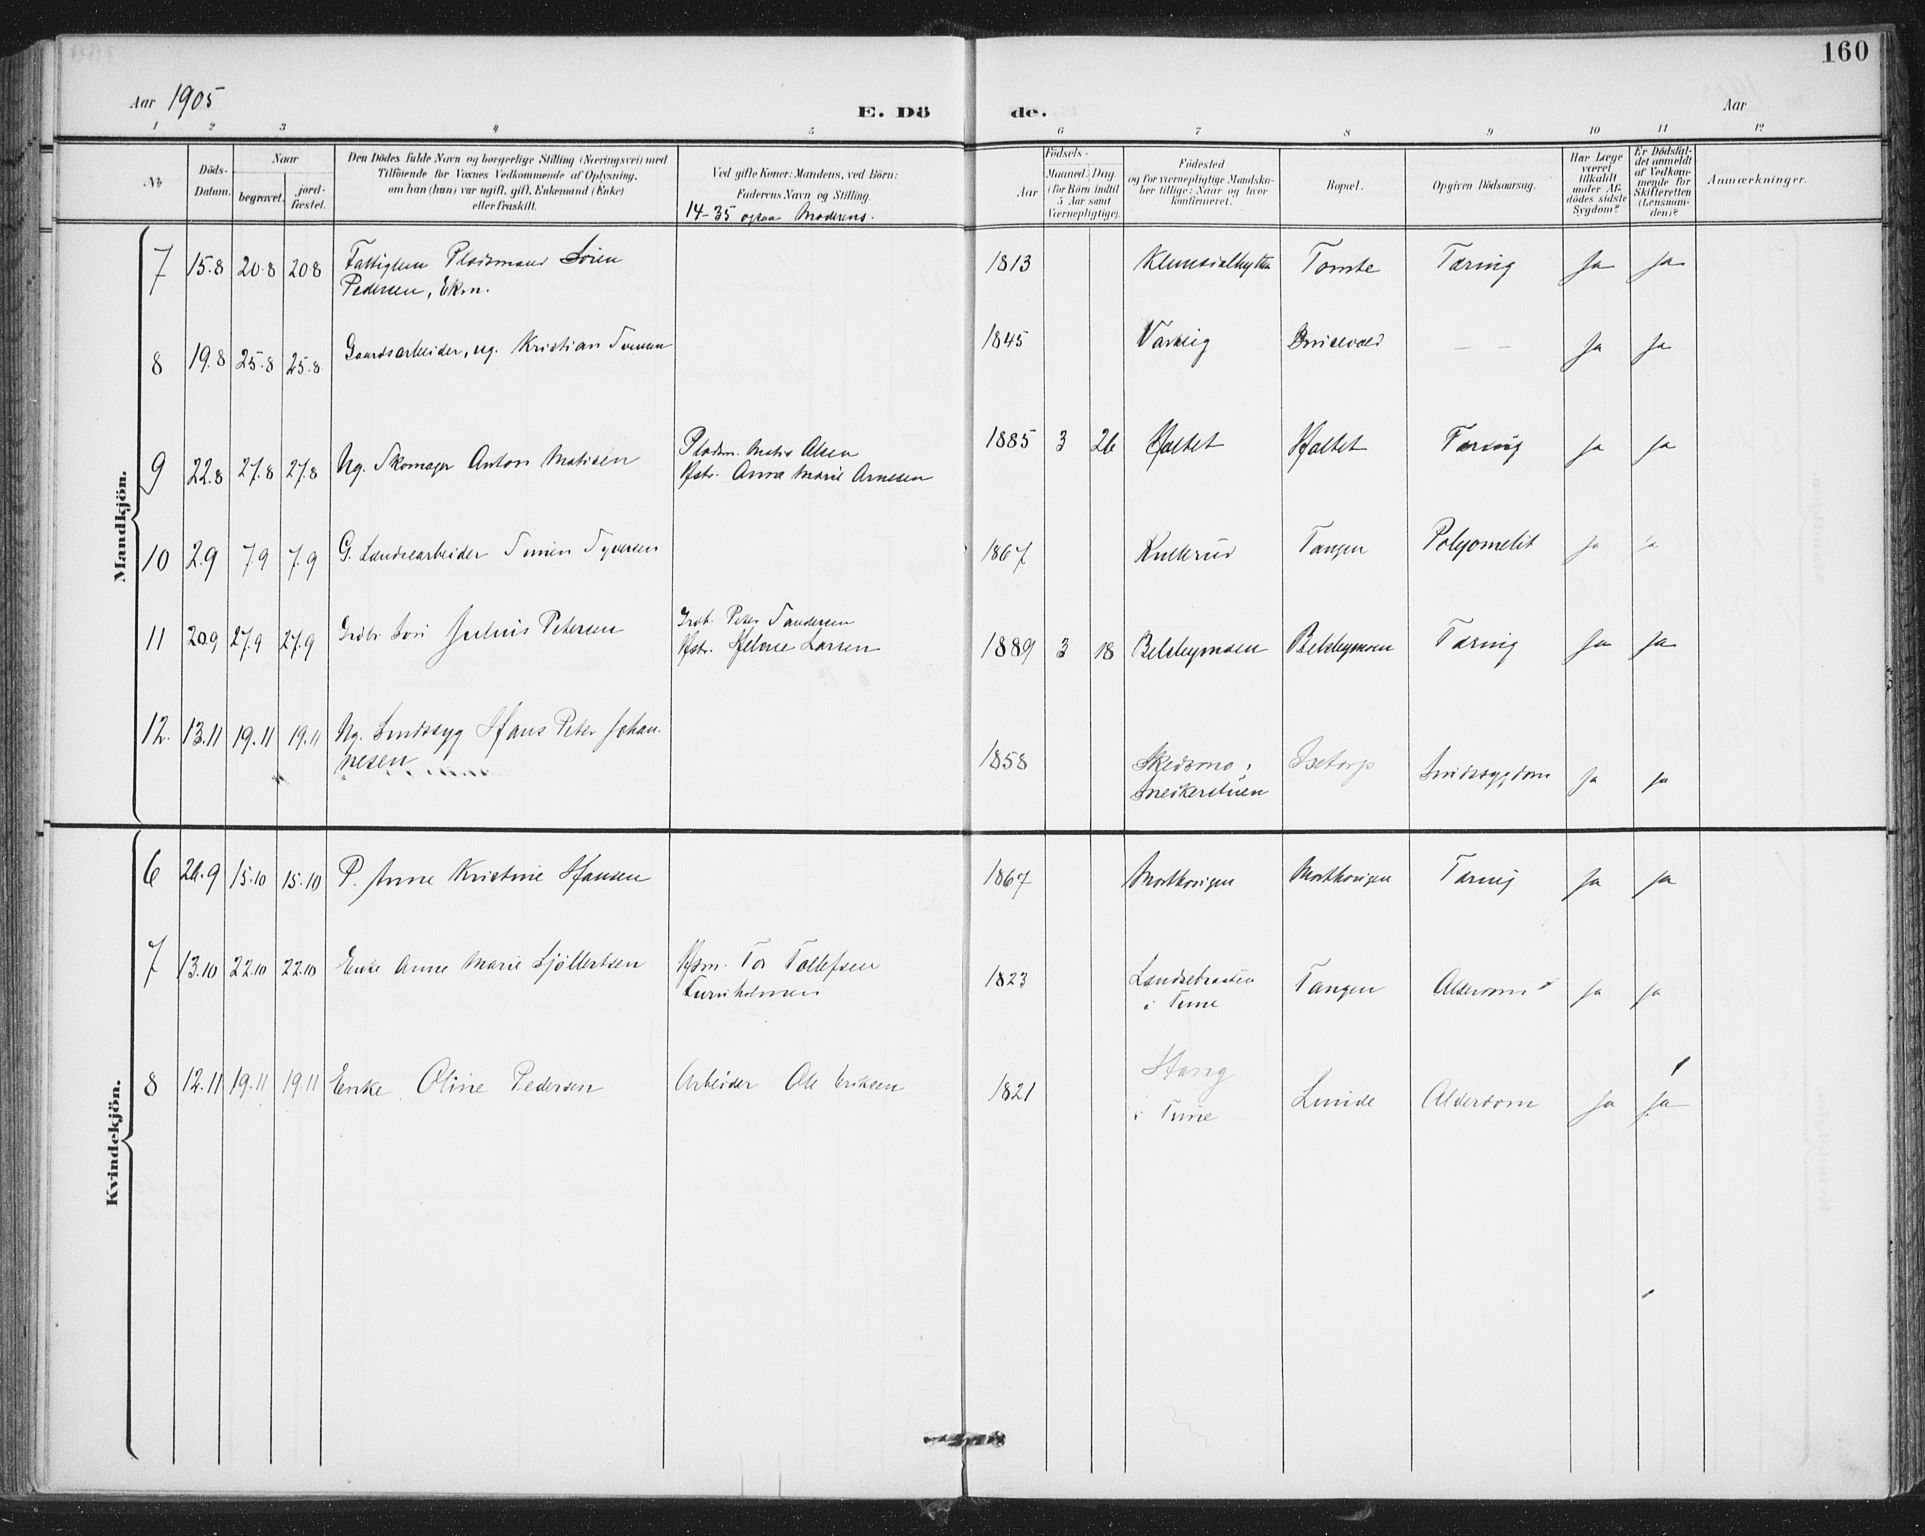 160
Aar 1905
E. Dö
de.
Aar
1 2 3 4 5 6 7 8 9 10 11 12
No
Döds-
Datum.
Naar
begravet.
jord-
fæstet.
Den Dödes fulde Navn og borgerlige Stilling (Næringsvei) med
Tilföiende for Voxnes Vedkommende af Oplysning,
om han (hun) var ugift, gift, Enkemand (Enke)
eller fraskilt.
Ved gifte Koner: Mandens, ved Börn:
Faderens Navn og Stilling.
14-35 ogsaa Moderens.
Födsels-
Aar
Maaned.
Dag.
(for Börn indtil
5 Aar samt
Værnepligtige).
Födested
og for værnepligtige Mandska-
ber tillige: Naar og hvor
konfirmeret.
Bopæl.
Opgiven Dödsaarsag.
Har Læge
været
tilkaldt
under Af-
dödes sidste
Sygdom?
Er Dödsfal-
det anmeldt
af Vedkom-
mende for
Skifteretten
(Lensman-
den)?
Anmærkninger.
Mandkjön.
7 15.8 20.8 20.8 Fattiglem Pladsmand Sören 1813 Tomte Tæring Ja Ja
Pedersen, Ekm.
8 19.8 25.8 25.8 Gaardsarbeider, ug. Kristian 1845 Varteig — — Ja Ja
9 22.8 27.8 27.8 Ug. Skomager Anton Matisen Pladsm. Matis Olsen 1885 3 26 Holtet Holtet Tæring Ja Ja
Hstr. Anne Marie Arnesen
10 2.9 7.9 7.9 G. Landsearbeider Simen Syversen 1867 Kullerud Tangen Polyomelit Ja Ja
11 20.9 27.9 27.9 Grdbr. Sön Julius Petersen Grdb. Peter Sandersen 1889 3 18 Belsbymoen Belsbymoen Tæring Ja Ja
Hstr. Helene Larsen
12. 13.11 19.11 19.11 Ug. Sindssyg Hans Peter Johan- 1858 Skedsmo, Isetorp Sindssygdom Ja Ja
nesen Snedkerstuen
Kvindekjön.
6 15.10 15.10 P. Anne Kristine Hansen 1867 Tæring Ja Ja
7 13.10 22.10 22.10 Enke Anne Marie Hsm. Tor Tollefsen 1823 Landsebraaten Tangen Alderdom Ja Ja
i Tune
8 12.11 19.11 19.11 Enke Oline Pedersen Arbeider Ole Eriksen 1821 Haug Lunde Alderdom Ja Ja
i Tune